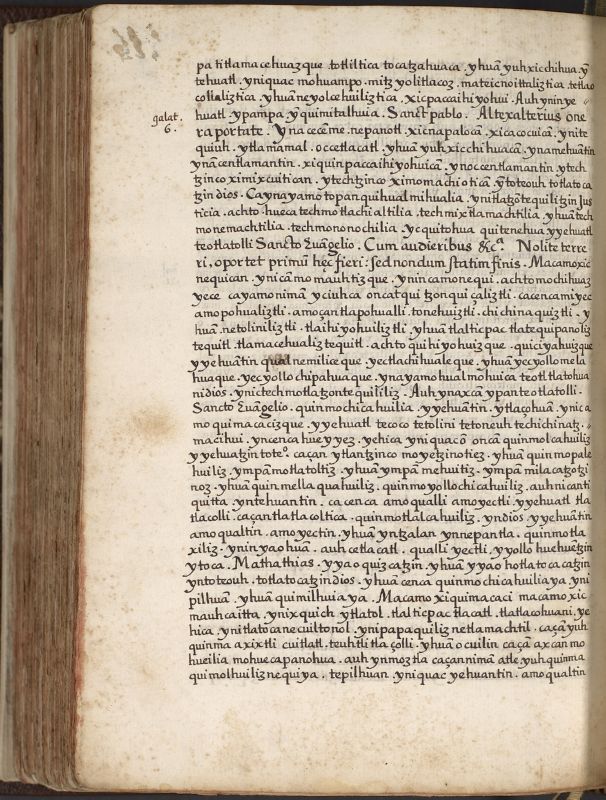 pa titlamacehuazque . totliltica tocatzahuaca . yhuã yuh xicchihua . ỹ
tehuatl . yniquac mohuampo . mitz yolitlacoz . mateicnoittaliztica . tetlao
coltiliztica . yhuã neyolcehuiliztica . xicpaccaihiyohui . Auh yn in ye
huatl ypãpa . ỹ quimitalhuia . Sanct pablo . Alter alterius one
galat.
6.
ra portate . Yna cecẽme . nepanotl . xicnapalocã . xicacocuicã . ynite
quiuh . ytlamamal . occetlacatl . yhuã yuh xicchihuacã . yn amehuãtin
ynã centlamantin . xiquinpaccaihiyohuicã . yn occentlamantin . ytech
tzinco ximixcuitican . ytechtzinco ximomachioticã . ỹ toteouh totlatoca
tzin dios . Ca ynayamo topan quihualmihualia . ynitlatzõtequilitzin Jus
ticia . achto . hueca techmotlachialtilia . techmixtlamachtilia . yhuã tech
monemachtilia . techmononochilia . yc quitohua quitenehua yyehuatl
teotlatolli Sancto Euãgelio . Cum audieritis &c.ª Nolite terre
ri, oportet primũ hęc fieri : sed nondum statim finis . Macamo xic
nequican . ynicãmo mauhtizque . ynin camo nequi . achto mochihuaz
yece cayamo nimã yciuhca oncatqui tzonquiçaliztli . cacenca miyec
amo pohualiztli . amo çantlapohualli . tonehuiztli . chichinaquiztli . y
huã . netoliniliztli . tlaihiyohuiliztli . yhuã tlalticpac tlatequipanoliz
tequitl . tlamacehualiztequitl . achto quihiyohuizque . quiciyahuizque
yyehuãtin qualnemiliceque . yectlachihualeque . yhuã yecyollo mela
huaque . yecyollo chipahuaque . ynayamo hualmohuica teotl tlatohua
ni dios . ynic techmotlatzontequililiz . Auh ynaxcã ypan teotlatolli .
Sancto Euãgelio . quinmochicahuilia . yyehuãtin . ytlaçohuã . ynic a
mo quimacacizque . yyehuatl tecoco tetolini tetoneuh techichinatz .
macihui . yncenca hueyyez . yehica yniquac õ oncã quinmolcahuiliz
yyehuatzin toteº . caçan ytlantzinco moyetzinotiez . yhuã quinmopale
huiliz . ympã motlatoltiz . yhuã ympã mehuitiz . ympã milacatzotzi
noz . yhuã quinmellaquahuiliz . quinmoyollochicahuiliz . auh nicanti
quitta . yntehuantin . ca cenca amo qualli amo yectli . yyehuatl tla
tlacolli . caçantlatlacoltica . quinmotlalcahuiliz . yndios . yyehuãtin
amo qualtin . amo yectin . yhuã yntzalan ynnepantla . quinmotla
xiliz . yninyaohuã . auh cetlacatl . qualli yectli . yyollo huehuẽtzin
ytoca . Mathathias . yyaoquizcatzin . yhuã yyaohotlatocatzin
yntoteouh . totlatocatzin dios . yhuã cenca quinmochicahuiliaya . yni
pilhuan . yhuã quimilhuiaya . Macamo xiquimacaci macamo xic
mauhcaitta . ynixquich ytlatol . tlalticpactlacatl . tlatlacohuani . ye
hica . ynitlatocanecuiltonol . ynipapaquiliz netlamachtil . caçã yuh
quinma axixtli cuitlatl . teuhtli tlaçolli . yhuã ocuilin caçã axcan mo
hueilia mohuecapanohua . auh ynmoztla caçannimã atle yuhquinma
quimolhuiliznequiya . tepilhuan . yniquac yehuantin . amo qualtin